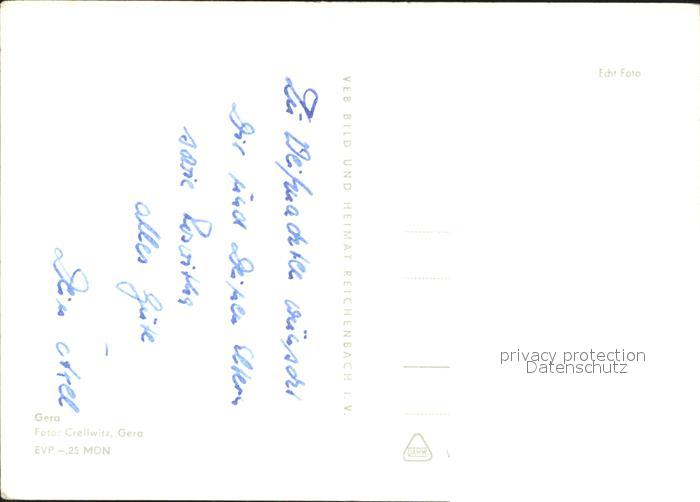 Zu Weihnachten wünscht
Dir und Deinen Eltern
sowie Roswitha
alles Gute
Dein
VEB BILD UND HEIMAT REICHENBACH I. V.
Echt Foto
Gera
Foto: Crellwitz, Gera
EVP –,25 MDN
privacy protection
Datenschutz